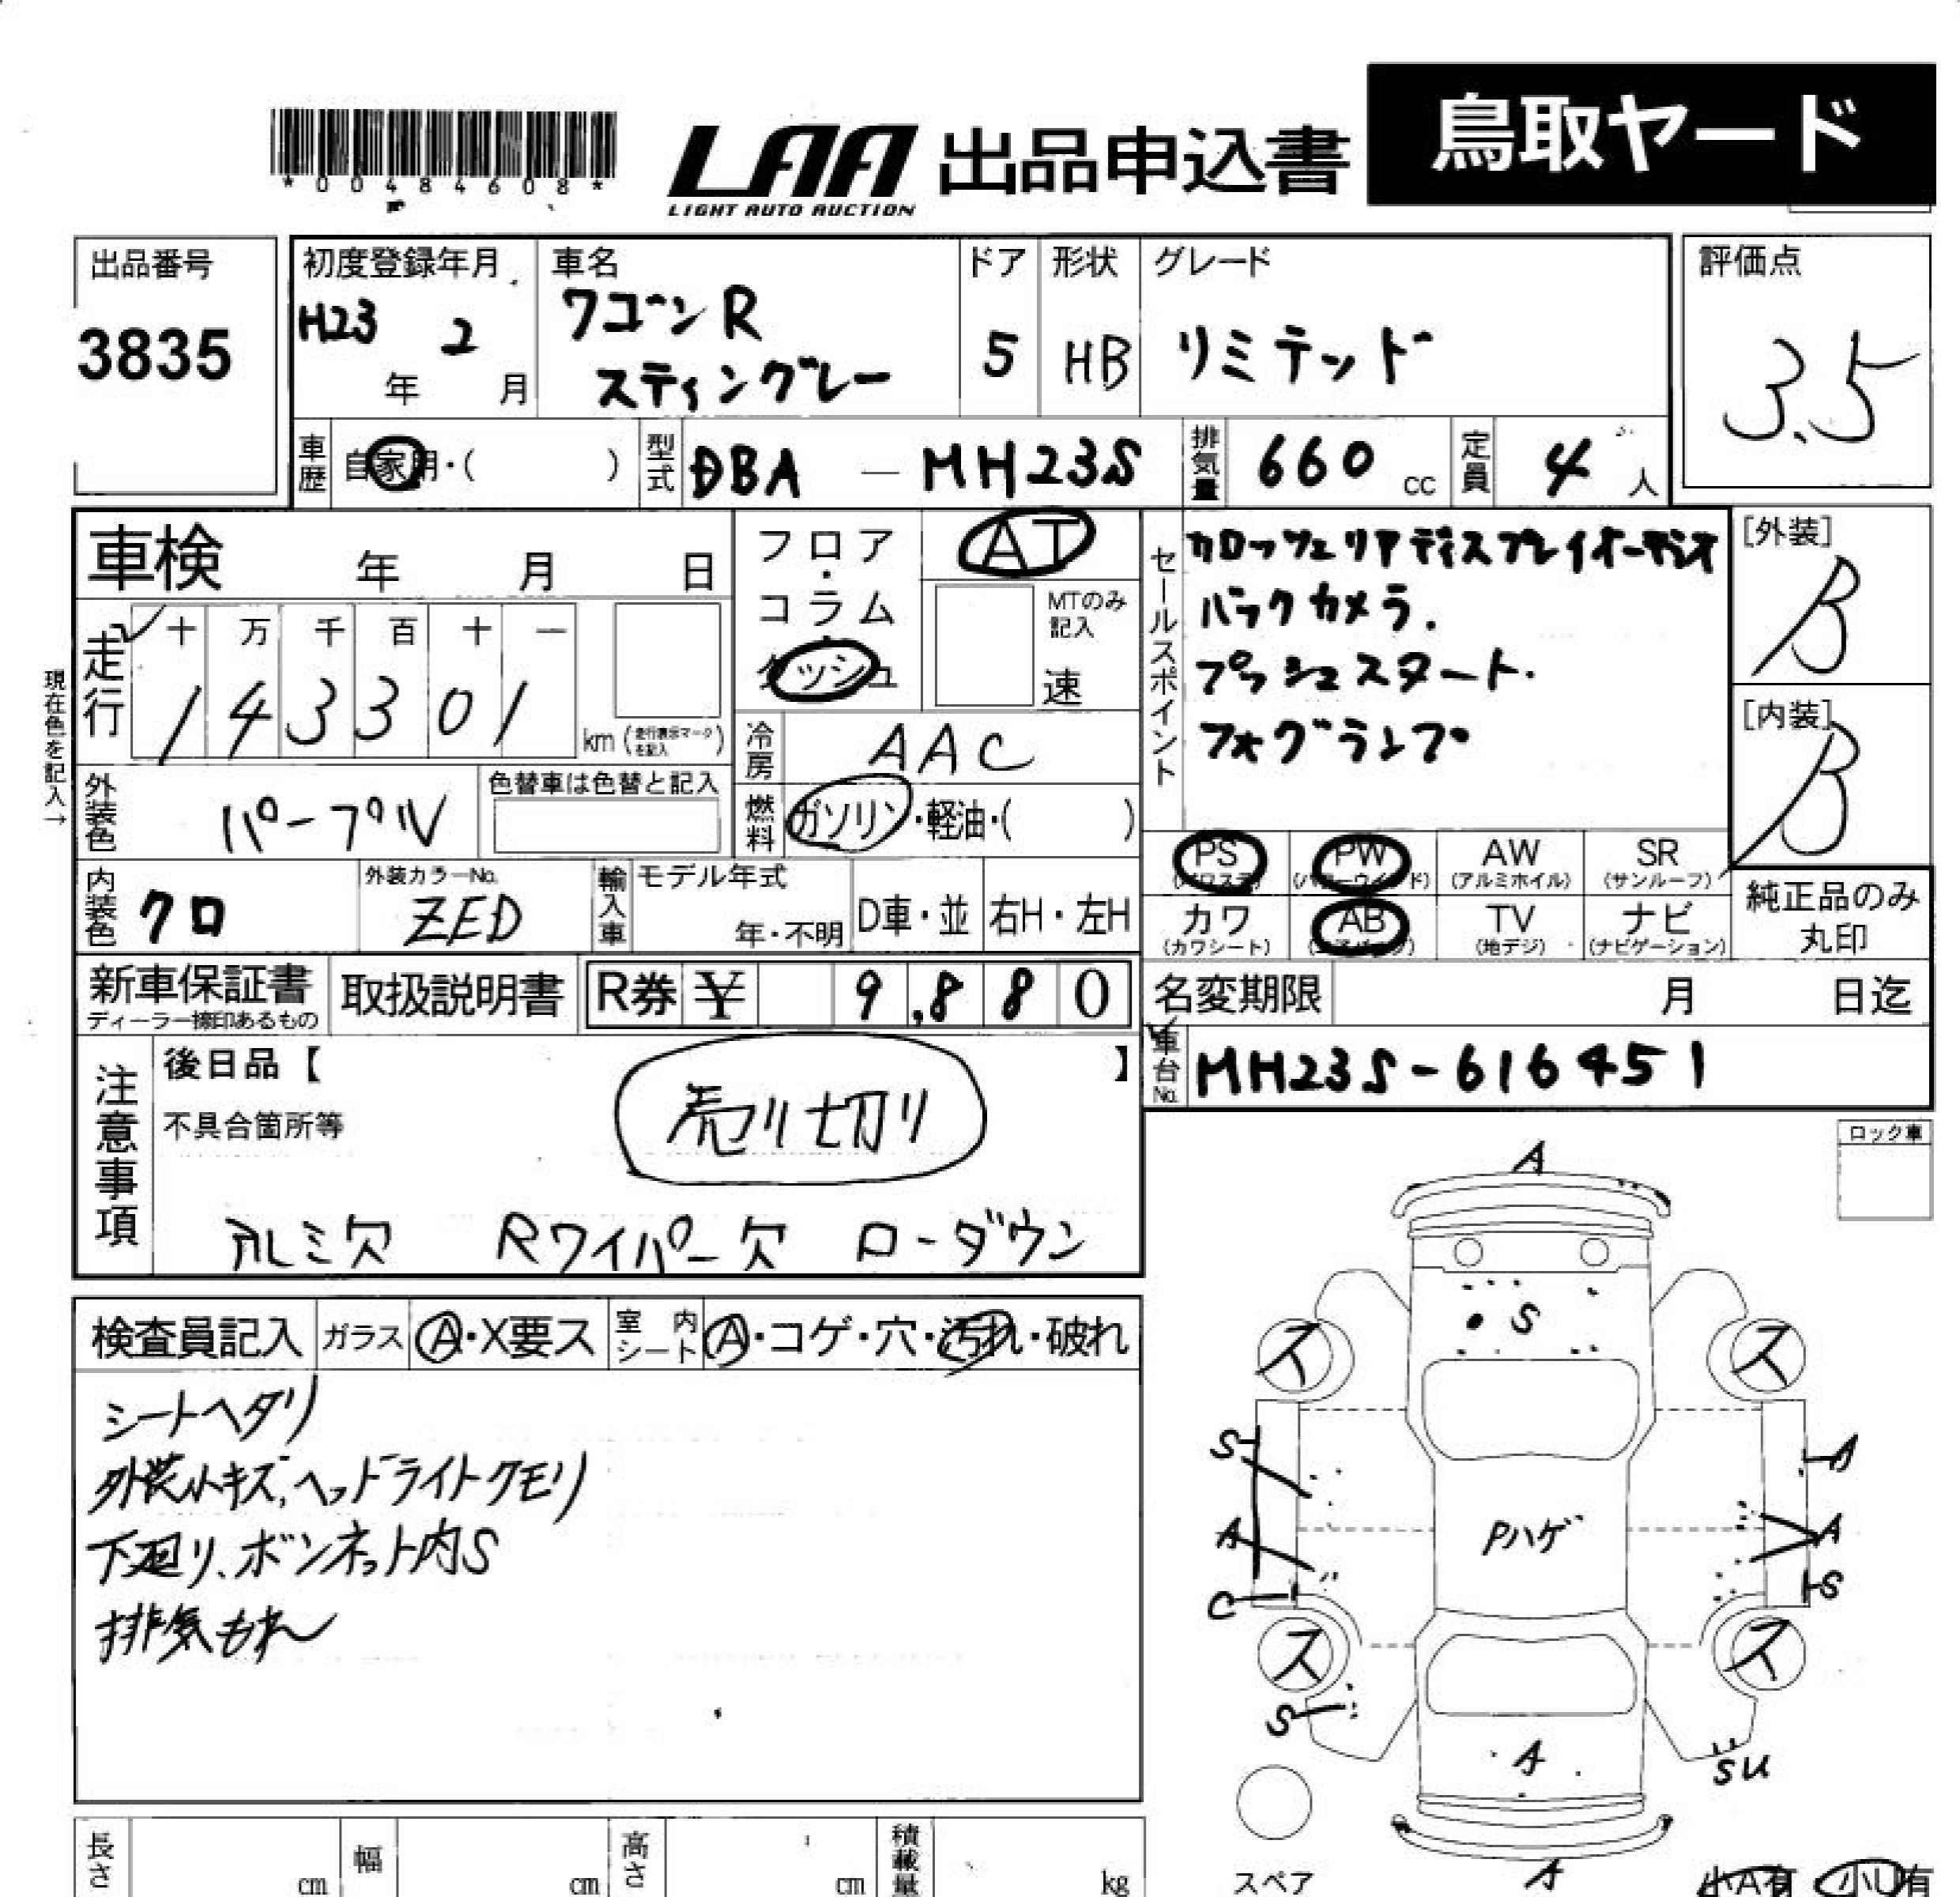 鳥取ヤード
*00484608*
LAA 出品申込書
LIGHT AUTO AUCTION
出品番号
3835
初度登録年月
H23 年 2 月
車名
ワゴンR
スティングレー
ドア
5
形状
HB
グレード
リミテッド
評価点
3.5
車歴 自家用・( )
型式 DBA — MH23S
排気量 660 cc
定員 4 人
車検 年 月 日
フロア・コラム・ダッシュ
AT
MTのみ記入
速
走行
十 万 千 百 十 一
1 4 3 3 0 1
km (走行表示マークを記入)
現在色を記入→
冷房 AAC
外装色 パープル
色替車は色替と記入
燃料 ガソリン・軽油・( )
内装色 クロ
外装カラーNo.
ZED
輸入車
モデル年式
年・不明
D車・並
右H・左H
セールスポイント
カロッツェリアディスプレイオーディオ
バックカメラ.
プッシュスタート.
フォグランプ
[外装]
B
[内装]
B
PS PW AW SR
(パワステ) (パワーウインド) (アルミホイル) (サンルーフ)
カワ AB TV ナビ
(カワシート) (エアバッグ) (地デジ) (ナビゲーション)
純正品のみ
丸印
新車保証書
ディーラー捺印あるもの
取扱説明書
R券 ¥ 9,880
名変期限 月 日迄
車台No. MH23S-616451
注意事項
後日品【 】
不具合箇所等
売り切り
アルミ欠 Rワイパー欠 ローダウン
ロック車
検査員記入 ガラス A・X要ス 室内シート A・コゲ・穴・汚れ・破れ
シートヘタリ
外装小キズ、ヘッドライトクモリ
下廻り、ボンネット内S
排気もれ
A
S
ス ス
S A
A Pハゲ A
C S
ス ス
S
A SU
A
スペア
小A有 小U有
長さ cm 幅 cm 高さ cm 積載量 kg